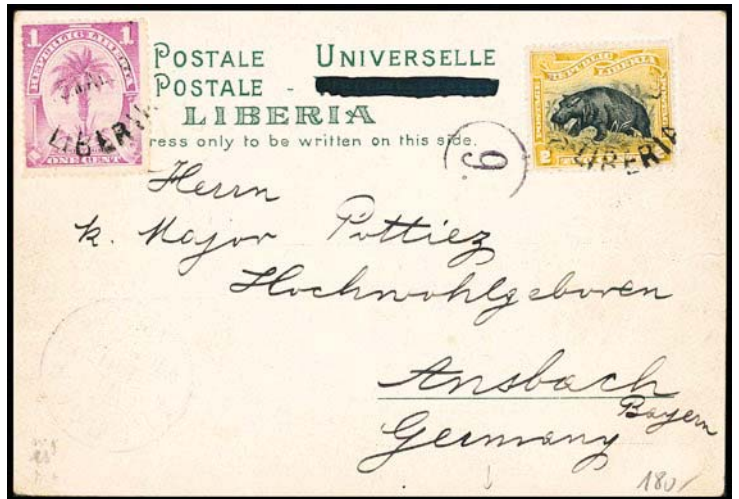 1
REPUBLIC LIBERIA
LIBERIA
ONE CENT
POSTALE UNIVERSELLE
POSTALE -
LIBERIA
ress only to be written on this side.
REPUBLIC LIBERIA
2
LIBERIA
9
Herrn
k. Major Pottiez
Hochwohlgeboren
Ansbach
Bayern
Germany
180